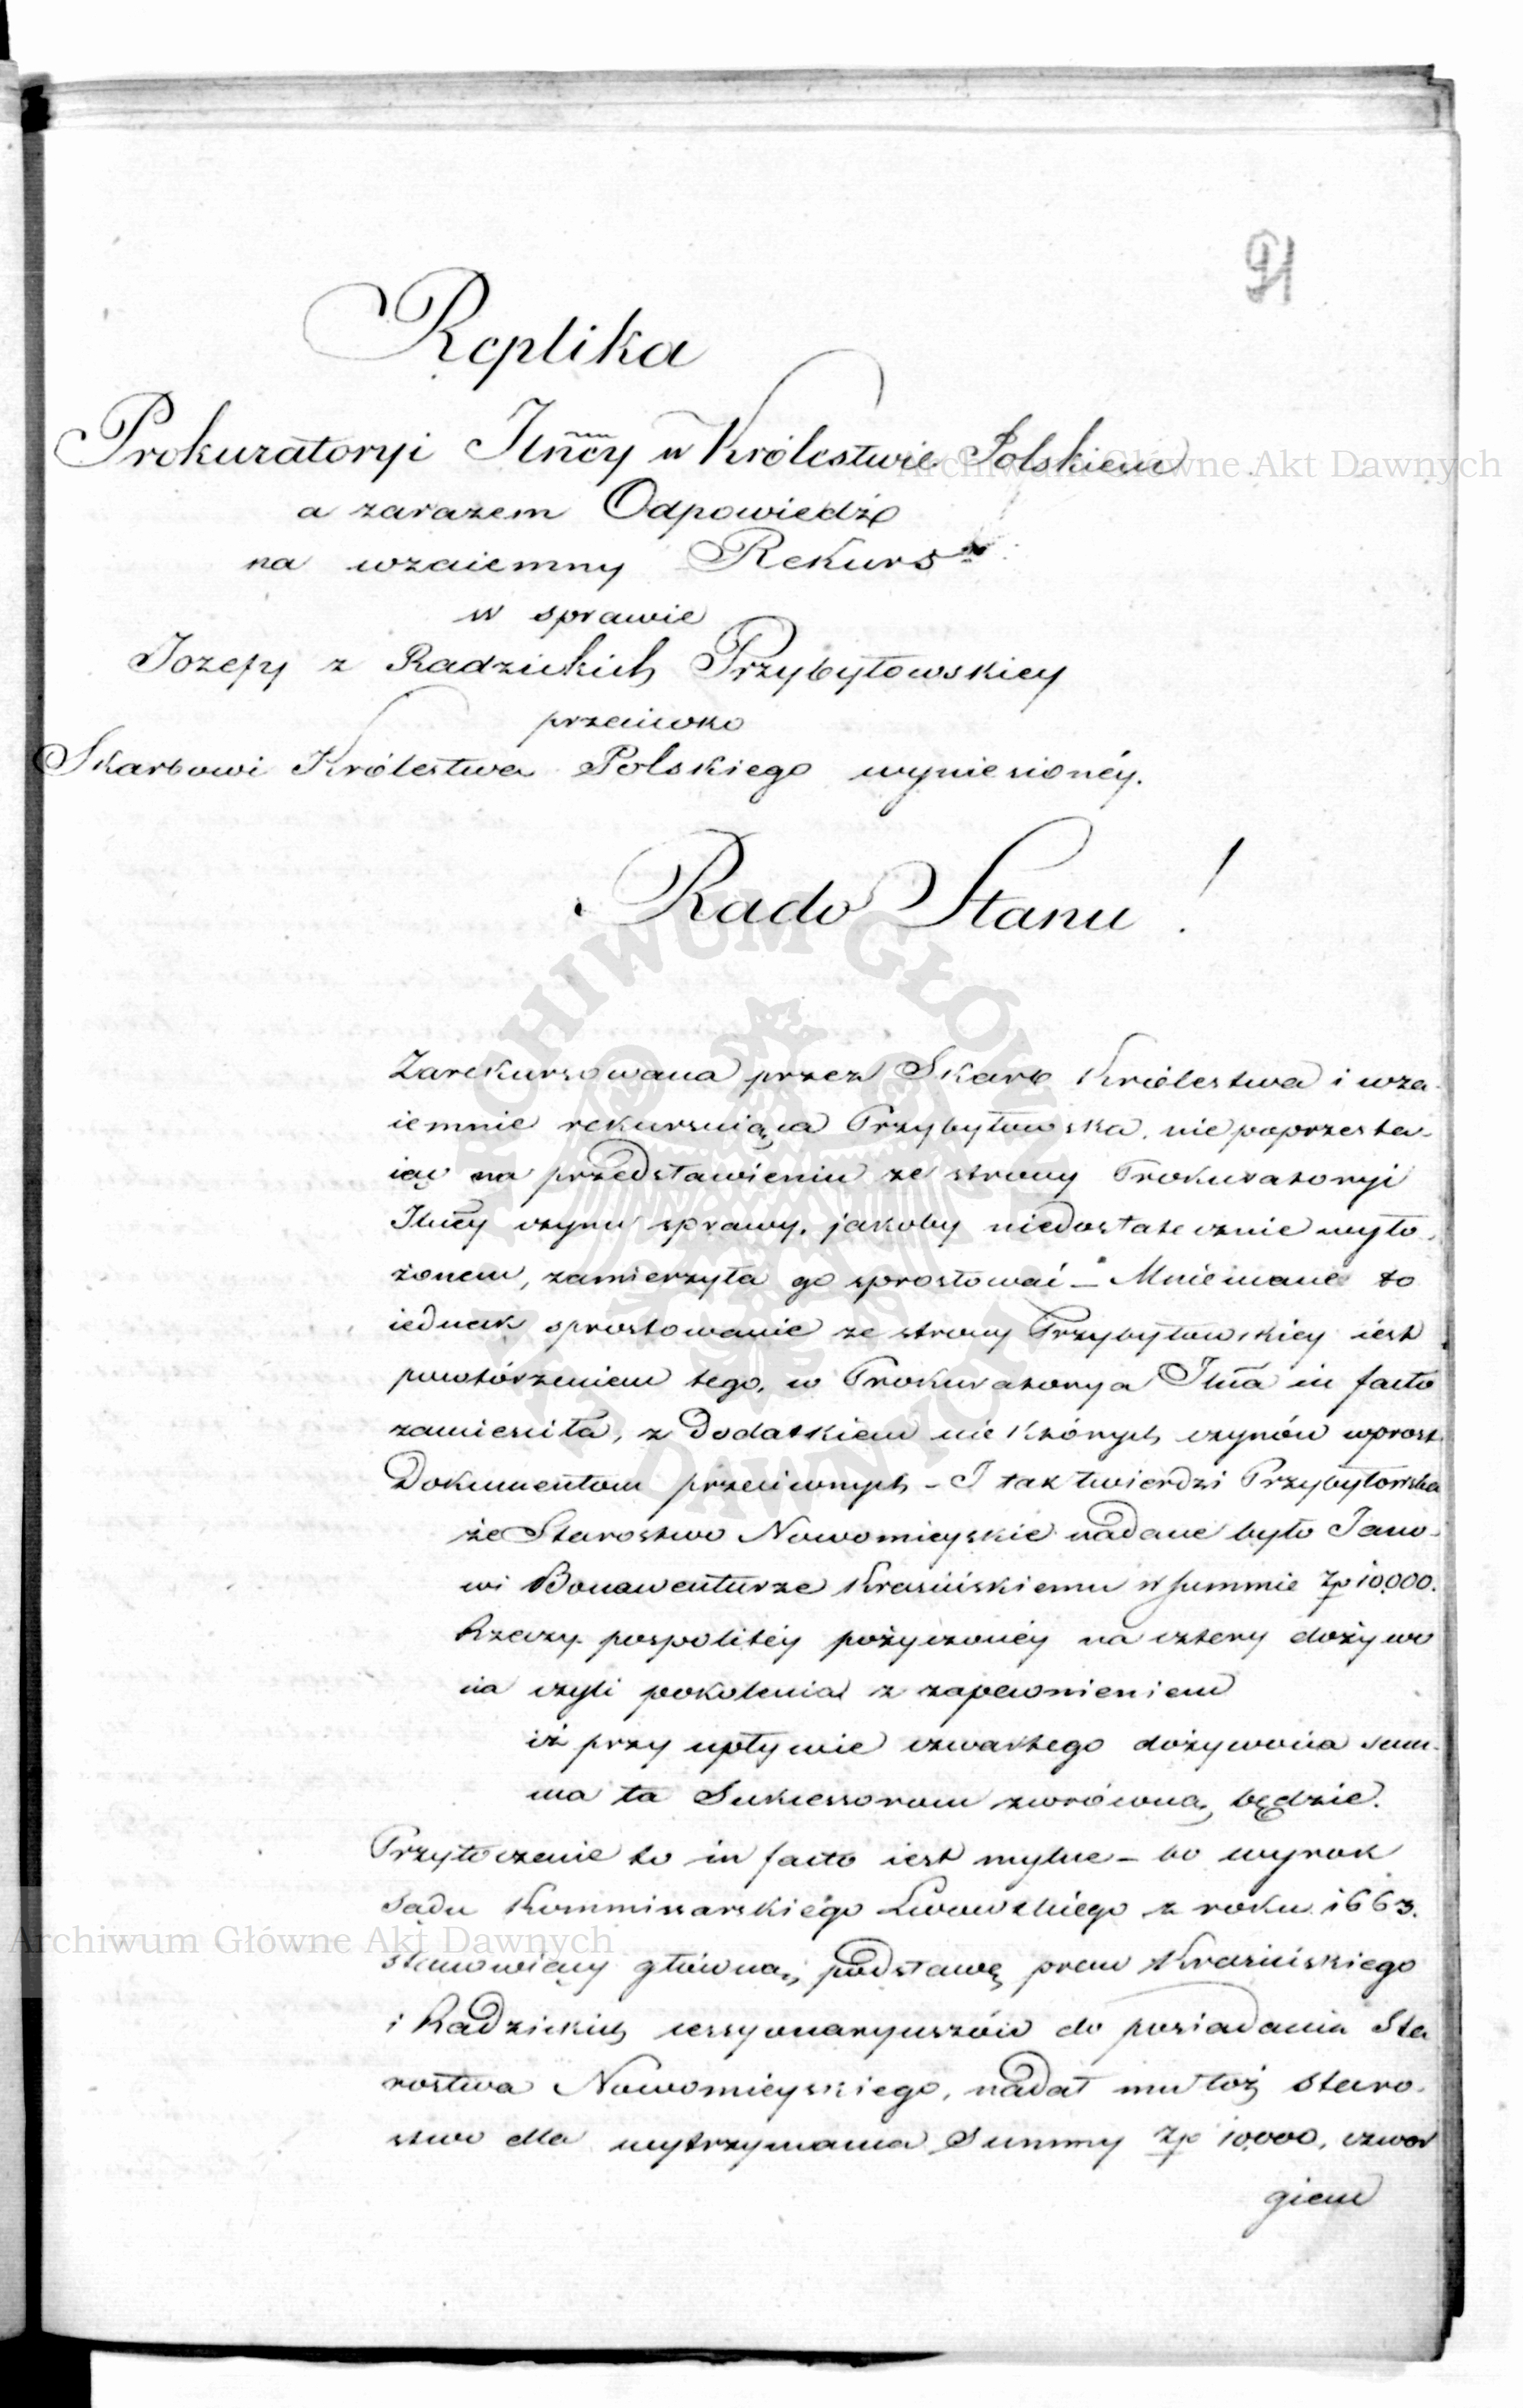 91
Replika
Prokuratoryi Jlnéy w Królestwie Polskiem
a zarazem Odpowiedź
na wzaiemny Rekurs
w sprawie
Jozefy z Radzickich Przybyłowskiey
przeciwko
Skarbowi Królestwa Polskiego wyniesionéy.
Rado Stanu!
Zarekursowana przez Skarb Królestwa i wza-
iemnie rekursuiąca Przybyłowska, nie poprzesta-
iąc na przedstawieniu ze strony Prokuratoryi
Jlnéy czynu sprawy, jakoby niedostatecznie wyło-
żonem, zamierzyła go sprostować – Mniemane to
iednak sprostowanie ze strony Przybyłowskiey iest
powtórzeniem tego, co Prokuratorya Jlna in facto
zamieściła, z dodatkiem niektórych czynów wprost
Dokumentom przeciwnych – I tak twierdzi Przybyłowska
że Starostwo Nowomieyskie nadane było Jano-
wi Bonawenturze Krasińskiemu w summie Zp 10,000.
Rzeczypospolitéy pożyczonéy na cztery dożywo
cia czyli pokolenia z zapewnieniem
iż przy upływie czwartego dożywocia sum-
ma ta Sukcessorom zwrócona będzie.
Przytoczenie to in facto iest mylne – bo wyrok
Sądu Kommissarskiego Lwowskiego z roku 1663.
stanowiący główną podstawę praw Krasińskiego
i Radzickich cessyonaryuszów do posiadania Sta
rostwa Nowomieyskiego, nadał mu toż Staro-
stwo dla wytrzymania Summy Zp 10,000, czwor
giem
Archiwum Główne Akt Dawnych
Archiwum Główne Akt Dawnych
ARCHIWUM GŁÓWNE AKT DAWNYCH